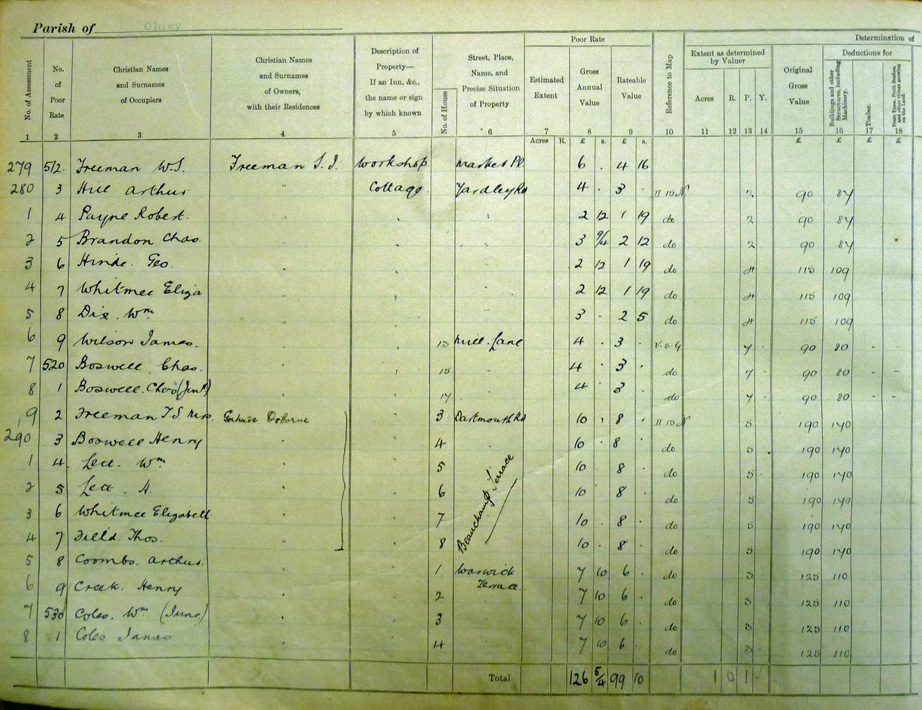 Parish of Olney
Determination of
Poor Rate
Extent as determined by Valuer
Deductions for
No. of Assessment
No. of Poor Rate
Christian Names and Surnames of Occupiers
Christian Names and Surnames of Owners, with their Residences
Description of Property— If an Inn, &c., the name or sign by which known
No. of House
Street, Place, Name, and Precise Situation of Property
Estimated Extent
Gross Annual Value
Rateable Value
Reference to Map
Acres R. P. Y.
Original Gross Value
Buildings and other Structures, including Machinery.
Timber.
1 2 3 4 5 6 7 8 9 10 11 12 13 14 15 16 17 18
Acres R. £ s. £ s. £ £ £ £
279 5/2 Freeman W.S. Freeman S.J. Workshop Market Pl. 6 . 4 16
280 3 Hill Arthur " Cottage Yardley Rd 4 . 3 . 11 10 N 2 90 84
1 4 Payne Robert " " " 2 12 1 19 do 2 90 84
2 5 Brandon Chas. " " " 3 2 12 do 2 90 84
3 6 Hinde. Geo. " " " 2 12 1 19 do 4 115 109
4 7 Whitmee Eliza " " " 2 12 1 19 do 4 115 109
5 8 Dix Wm " " " 3 . 2 5 do 4 115 109
6 9 Wilson James. " " 13 Mill Lane 4 . 3 . 7 90 80 - -
7 520 Boswell Chas. " " 15 " 4 . 3 . do 7 90 80 - -
8 1 Boswell. Chas (Junr) " " 17 " 4 . 3 . do 7 90 80 - -
9 2 Freeman T.S. Mrs Gertrude Osborne " 3 Dartmouth Rd 10 . 8 . 11 10 N 5 190 140
290 3 Boswell Henry " " 4 10 . 8 . do 5 190 140
1 4 Lett. Wm " " 5 10 8 . do 5 190 140
2 5 Lett. H. " " 6 10 8 . do 5 190 140
3 6 Whitmee Elizabeth " " 7 10 . 8 . do 5 190 140
4 7 Field Thos. " " 8 10 . 8 . do 5 190 140
Beauchamp Terrace
5 8 Coombs. Arthur " " 1 Warwick Terrace 7 10 6 . do 3 125 110
6 9 Creek. Henry " " 2 7 10 6 . do 3 125 110
7 530 Coles. Wm (Junr) " " 3 7 10 6 . do 3 125 110
8 1 Coles James " " 4 7 10 6 do 3 125 110
Total 126 5/4 99 10 1 0 1